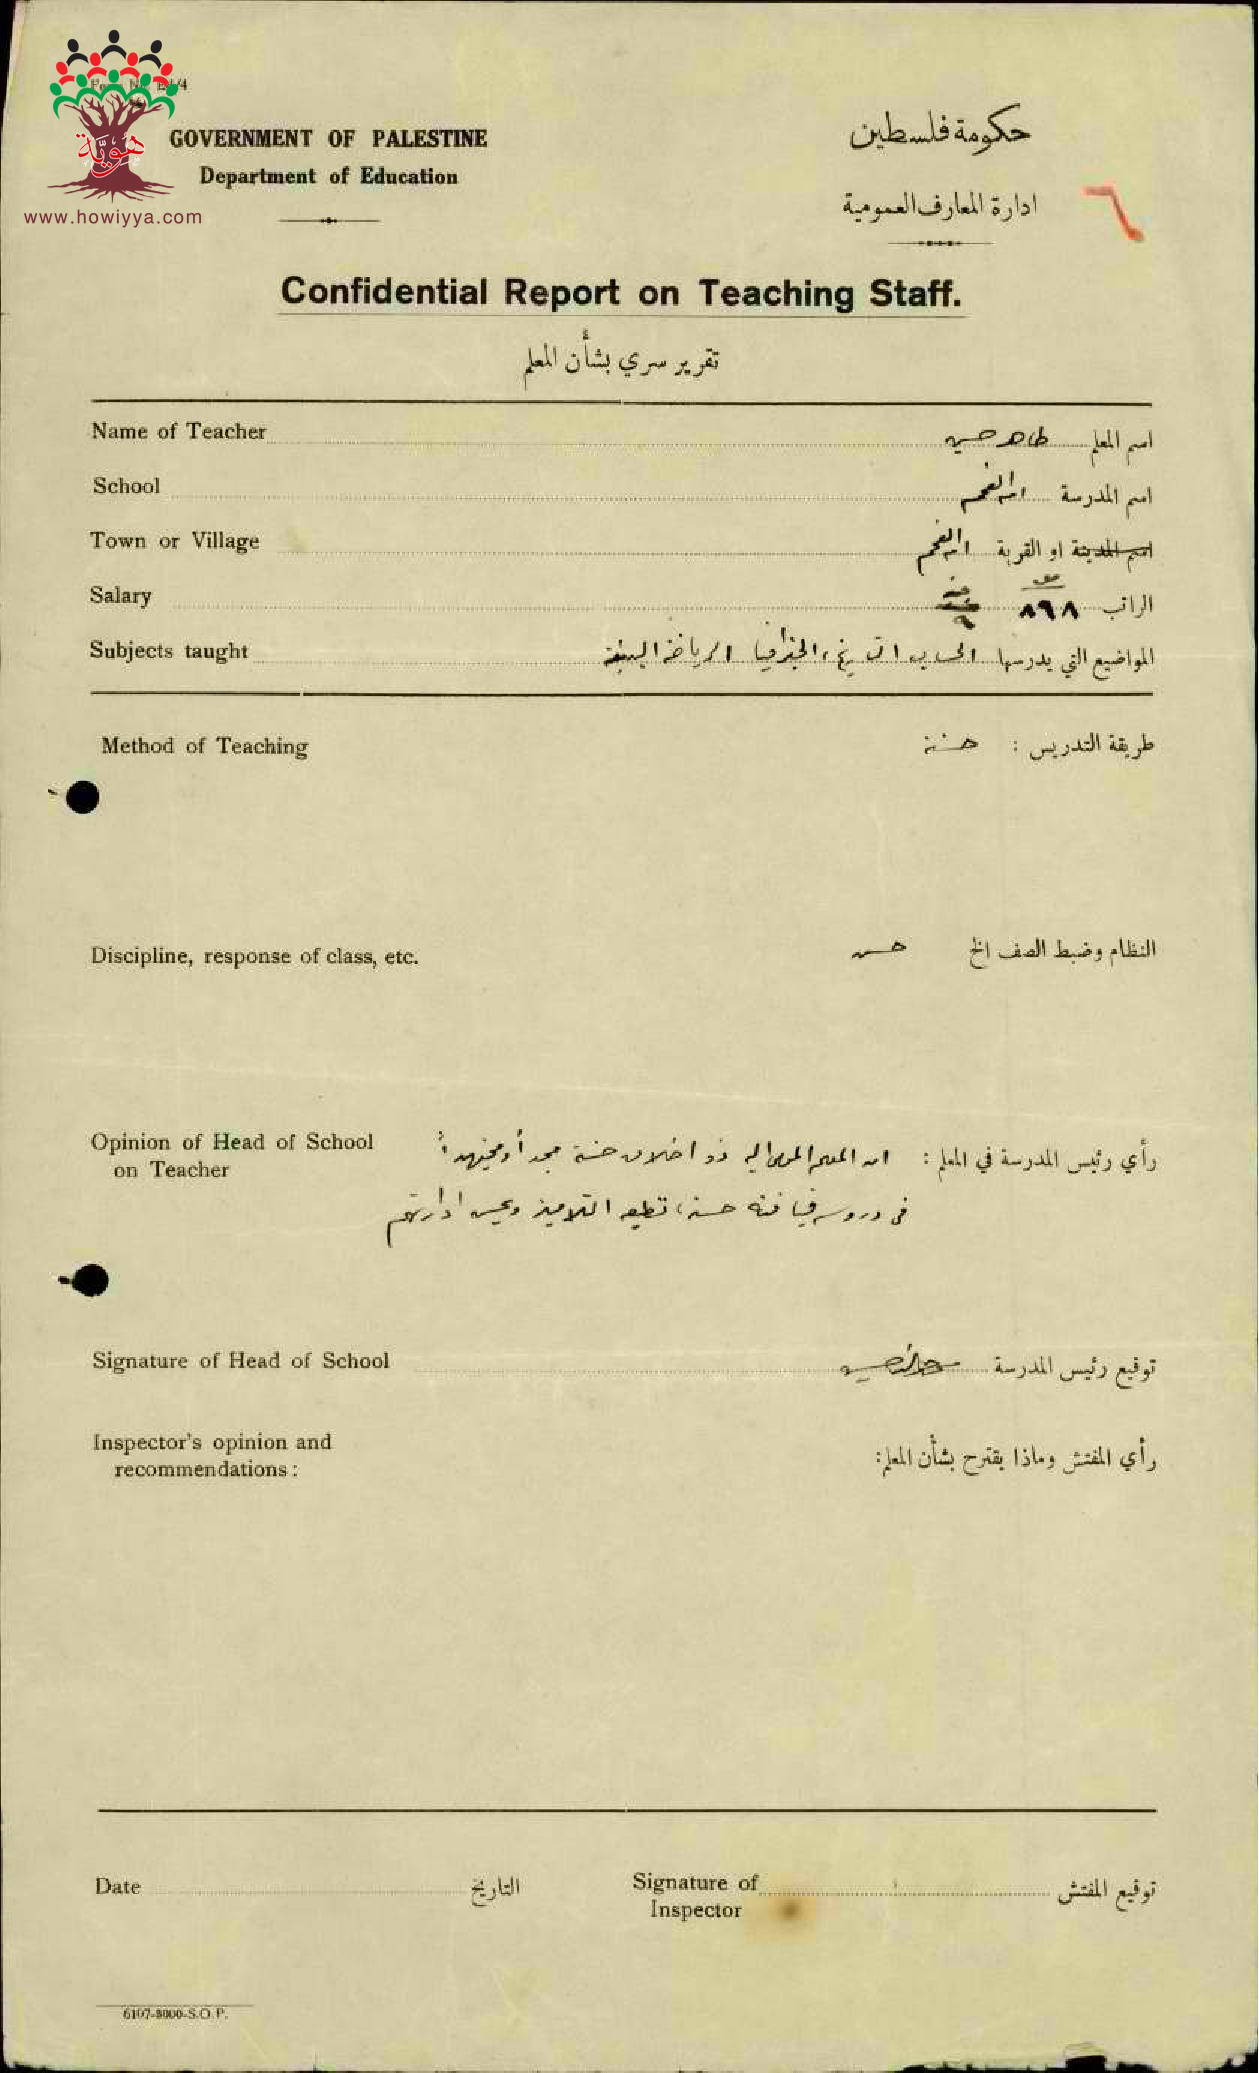 هوية
www.howiyya.com
GOVERNMENT OF PALESTINE
Department of Education
حكومة فلسطين
ادارة المعارف العمومية
٦
Confidential Report on Teaching Staff.
تقرير سري بشأن المعلم
Name of Teacher اسم المعلم طاهر حسين
School اسم المدرسة ام الفحم
Town or Village اسم المدينة او القرية ام الفحم
Salary الراتب ٨٦٨
Subjects taught المواضيع التي يدرسها الحساب التاريخ، الجغرافيا الرياضة البدنية
Method of Teaching طريقة التدريس : حسنة
Discipline, response of class, etc. النظام وضبط الصف الخ حسن
Opinion of Head of School رأي رئيس المدرسة في المعلم : ان المعلم الموما اليه ذو اخلاق حسنة مجداً ومجتهداً
on Teacher
في دروسه قيافته حسنة، تطيعه التلاميذ ويحسن ادارتهم
Signature of Head of School توقيع رئيس المدرسة
Inspector's opinion and رأي المفتش وماذا يقترح بشأن المعلم:
recommendations :
Date التاريخ Signature of توقيع المفتش
Inspector
6107-8000-S.O.P.